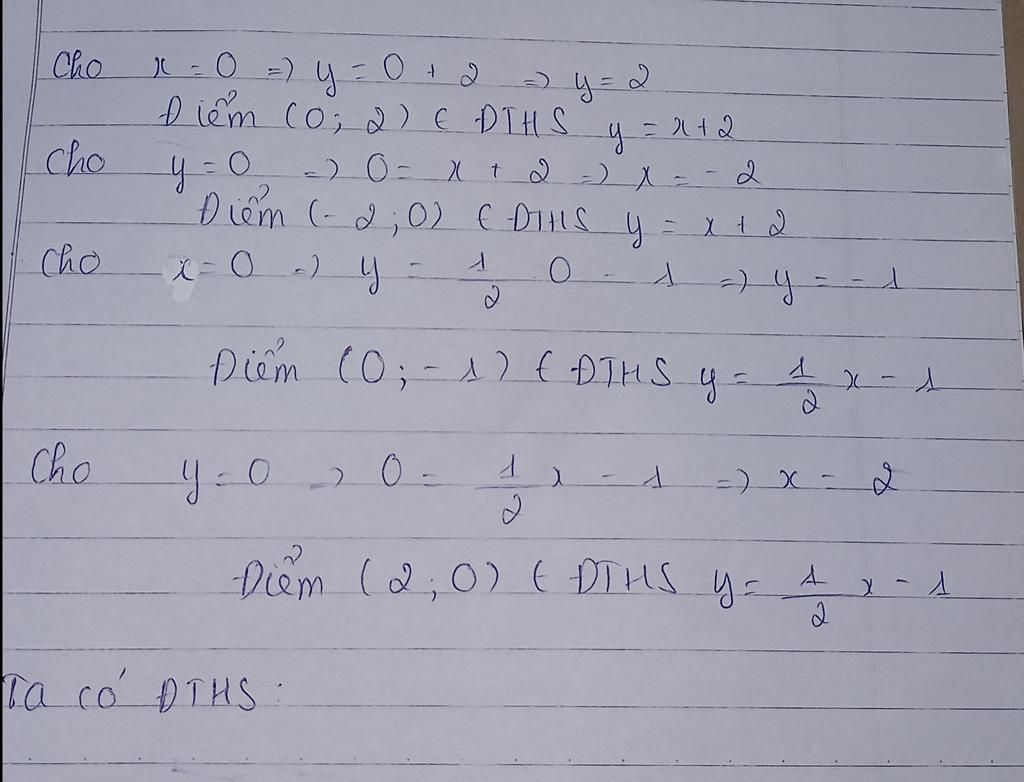 Cho x = 0 => y = 0 + 2 => y = 2
Điểm (0; 2) ∈ ĐTHS y = x + 2
Cho y = 0 => 0 = x + 2 => x = - 2
Điểm (- 2; 0) ∈ ĐTHS y = x + 2
Cho x = 0 => y = 1/2 0 - 1 => y = - 1
Điểm (0; - 1) ∈ ĐTHS y = 1/2 x - 1
Cho y = 0 => 0 = 1/2 x - 1 => x = 2
Điểm (2; 0) ∈ ĐTHS y = 1/2 x - 1
Ta có ĐTHS :